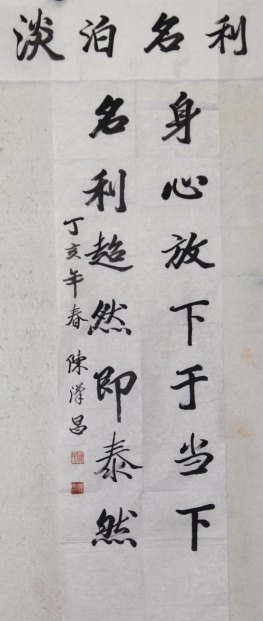 淡泊名利
身心放下于当下
名利超然即泰然
丁亥年春 陳漢昌